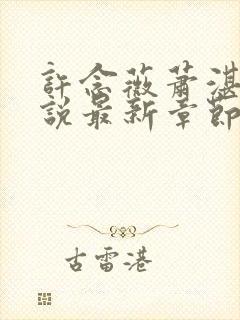 許念薇蕭湛
說最新章節
古雷港